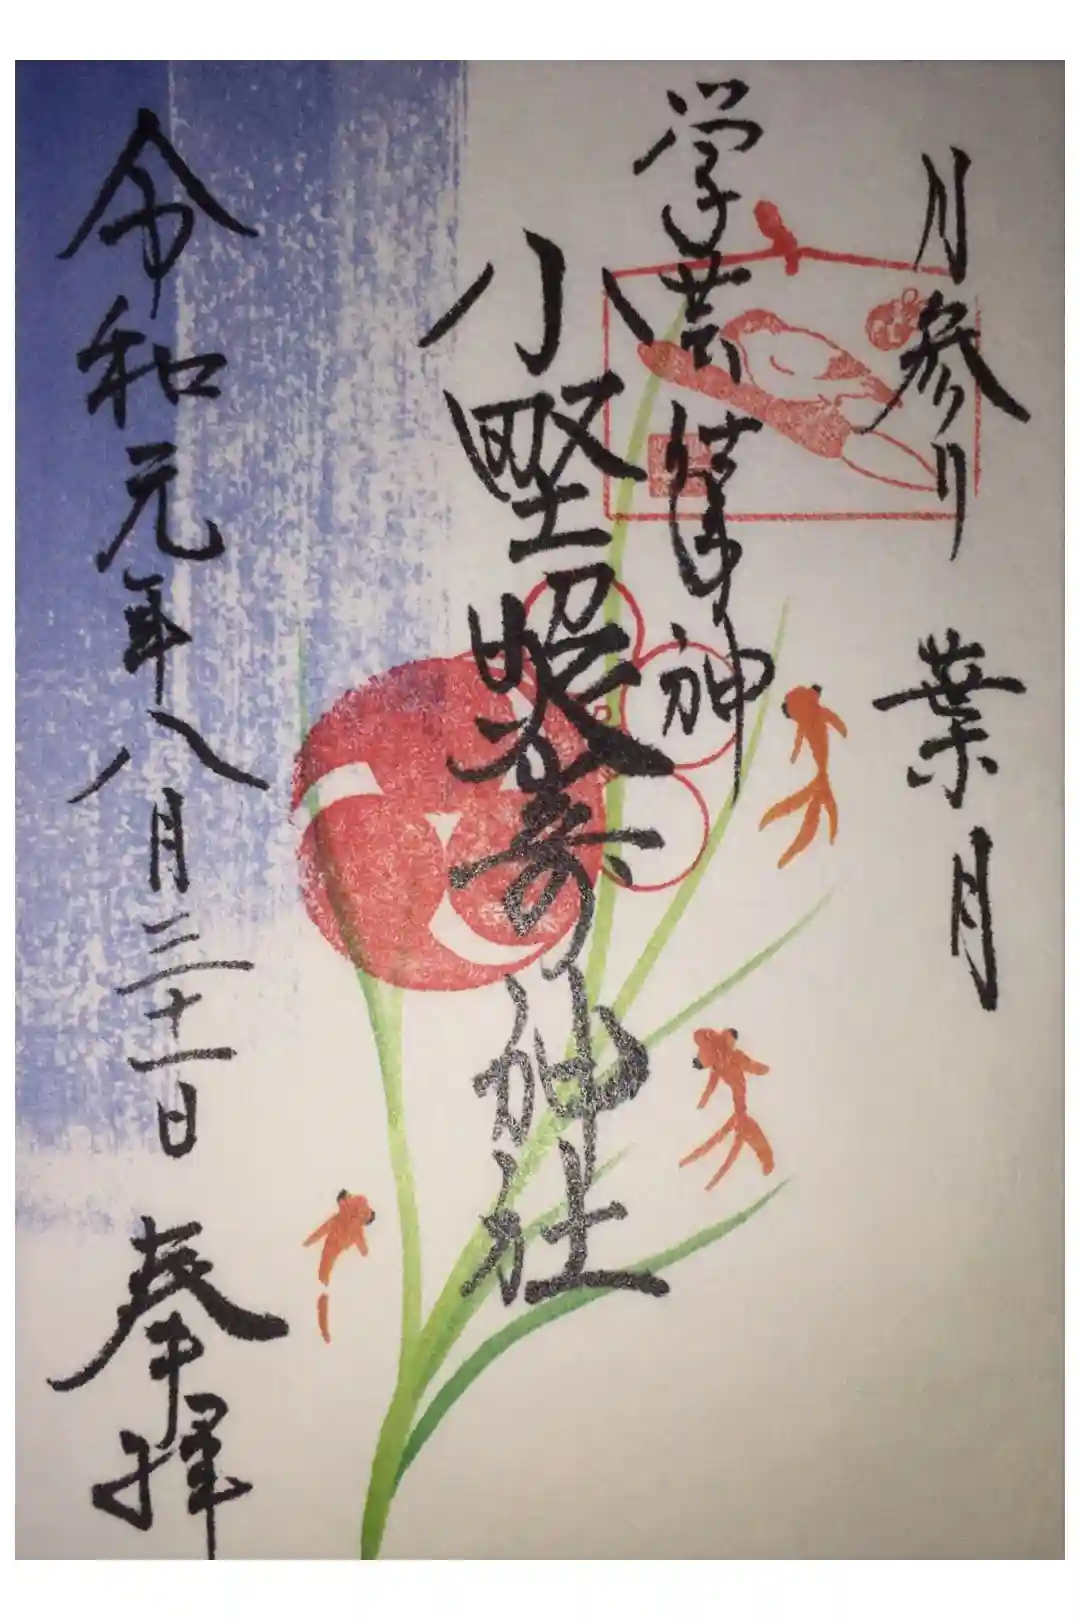 月参り 葉月
学芸精神
小野照崎神社
令和元年八月三十一日 奉拝